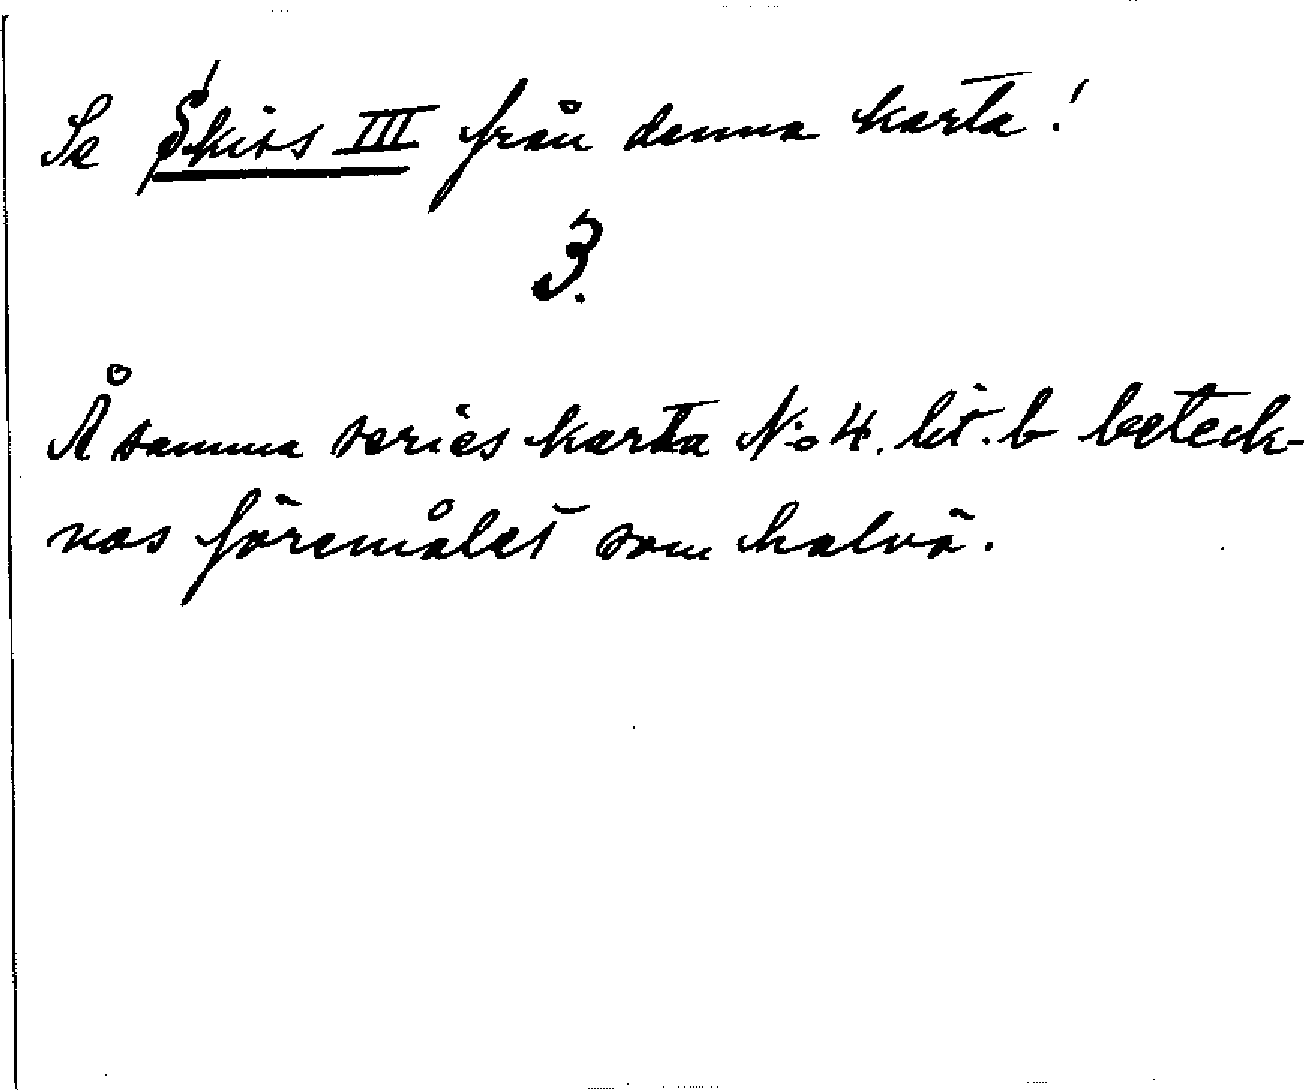 Se Skiss III från denna karta!
3.
Å samma series karta N:o 4. lit. b beteck-
nas föremålet som halvö.